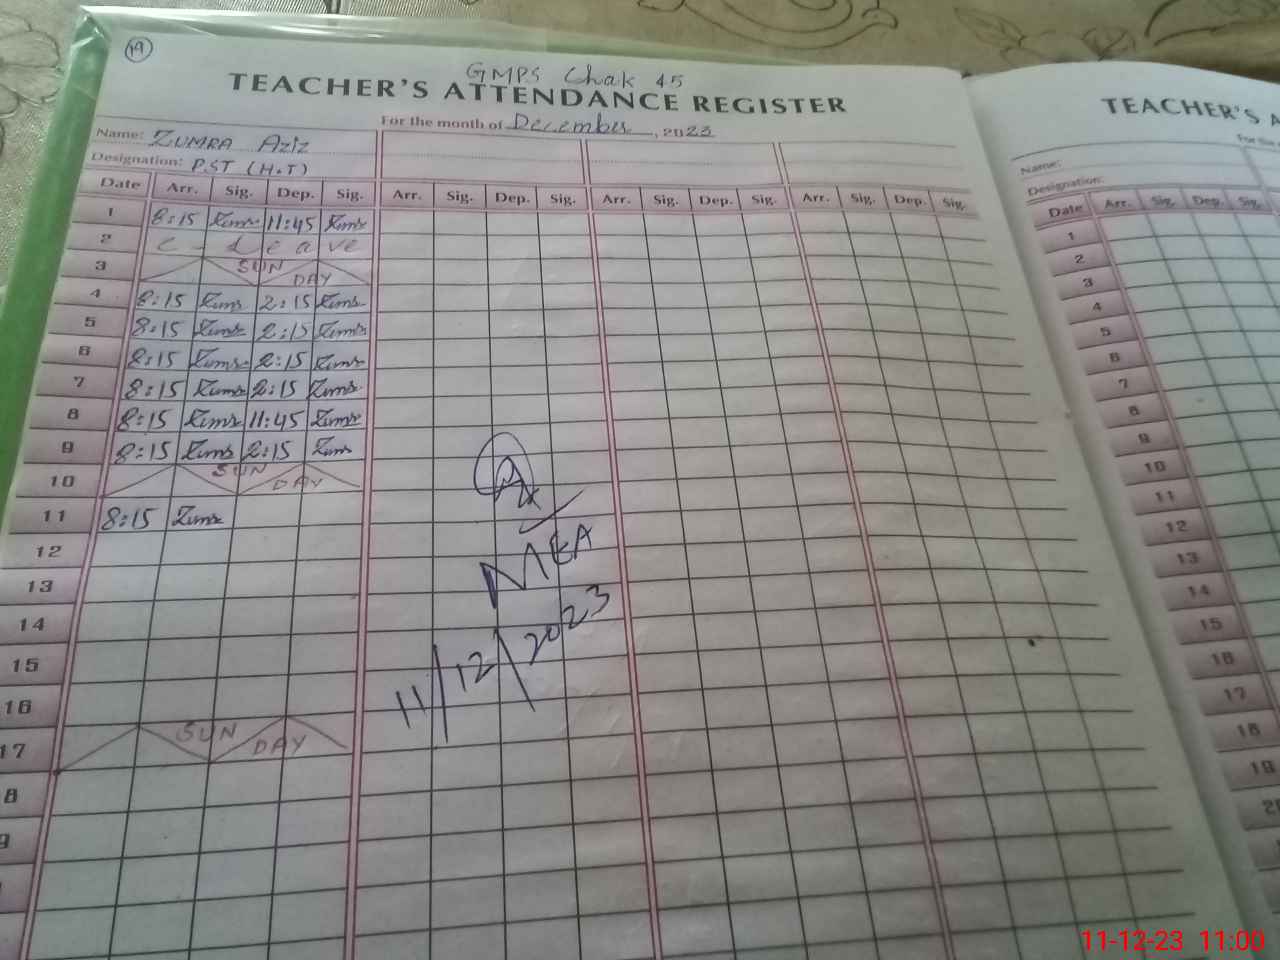 19
GMPS Chak 45
TEACHER'S ATTENDANCE REGISTER
For the month of December, 2023
Name: ZUMRA Aziz
Designation: PST (H.T)
Date Arr. Sig. Dep. Sig. Arr. Sig. Dep. Sig. Arr. Sig. Dep. Sig. Arr. Sig. Dep. Sig.
1 8:15 11:45
2 C - Leave
3 SUN DAY
4 8:15 2:15
5 8:15 2:15
6 8:15 2:15
7 8:15 2:15
8 8:15 11:45
9 8:15 2:15
10 SUN DAY
11 8:15
12
13
14
15
16
17 SUN DAY
8
9
MEA
11/12/2023
TEACHER'S A
For the
Name:
Designation:
Date Arr. Sig. Dep. Sig.
1
2
3
4
5
6
7
8
9
10
11
12
13
14
15
16
17
18
19
11-12-23 11:00